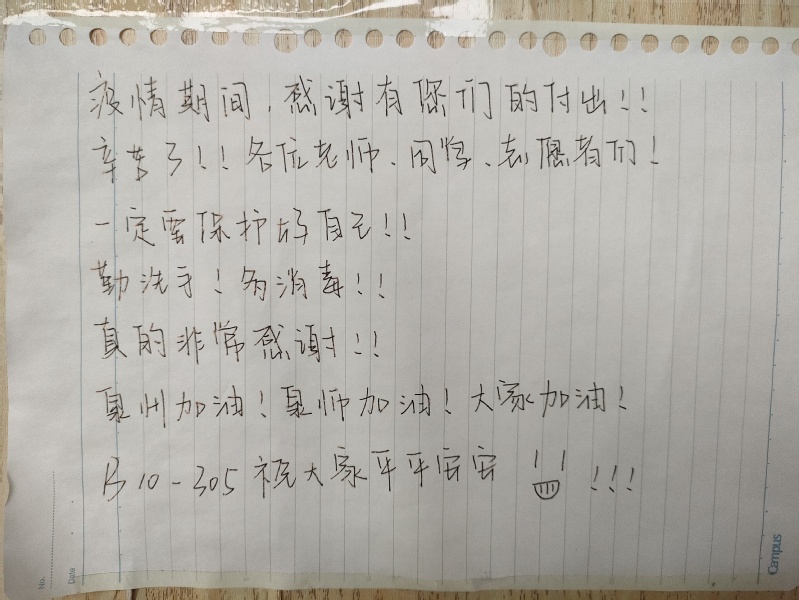 疫情期间，感谢有您们的付出!!
辛苦了!!各位老师、同学、志愿者们!
一定要保护好自己!!
勤洗手!多消毒!!
真的非常感谢!!
泉州加油!泉师加油!大家加油!
B10-305祝大家平平安安 !!!
No.
Date
Campus